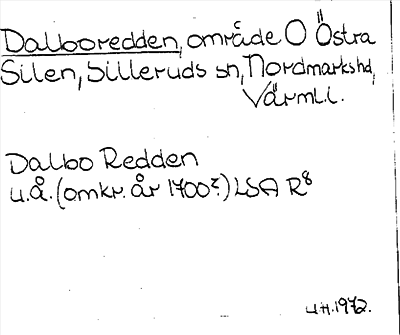 Dalboredden, område O Östra
Silen, Silleruds sn, Nordmarks hd,
Värml. l.
Dalbo Redden
u.å. (omkr. år 1700?) LSA R8
U.H. 1972.